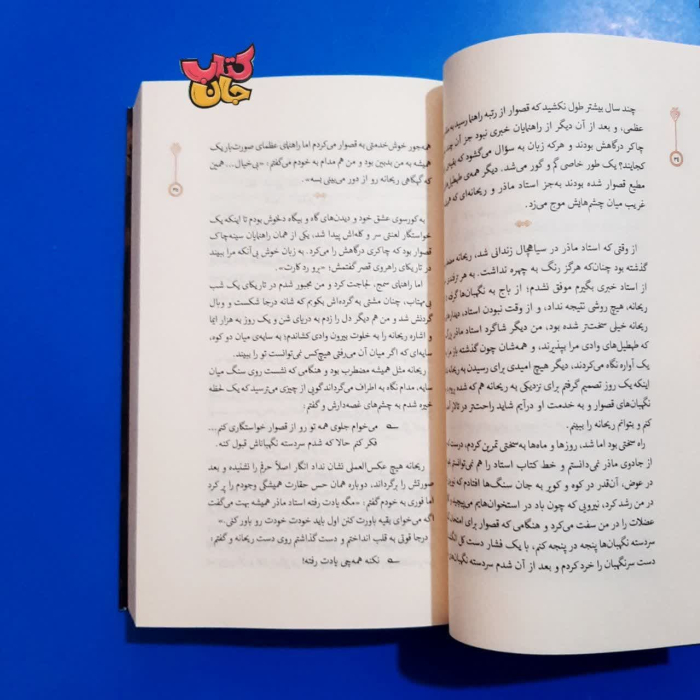 کتاب
جان
چند سال بیشتر طول نکشید که قصوار از رتبه راهنما رسید به
عظمی، و بعد از آن دیگر از راهنمایان خبری نبود جز آن
چاکر درگاهش بودند و هرکه زبان به سؤال می‌گشود که
کجایند؟ یک طور خاصی گم و گور می‌شد. دیگر همه‌ی
مطیع قصوار شده بودند به‌جز استاد ماذر و ریحانه‌ای که
غریب میان چشم‌هایش موج می‌زد.
از وقتی که استاد ماذر در سیاهچال زندانی شد، ریحانه
گذشته بود چنان‌که هرگز رنگ به چهره نداشت. به هر
از استاد خبری بگیرم موفق نشدم؛ از باج به نگهبان‌ها گرفته
ریحانه، هیچ روشی نتیجه نداد، و از وقت نبودن استاد،
ریحانه خیلی سخت‌تر شده بود، من دیگر شاگرد استاد ماذر
که طبطیل‌های وادی مرا بپذیرند، و همه‌شان چون گذشته
یک آواره نگاه می‌کردند، دیگر هیچ امیدی برای رسیدن به
اینکه یک روز تصمیم گرفتم برای نزدیکی به ریحانه هم که شده
نگهبان‌های قصوار و به خدمت او درآیم شاید راحت‌تر در تالار
کنم و بتوانم ریحانه را ببینم.
راه سختی بود اما شد، روزها و ماه‌ها به‌سختی تمرین کردم،
از جادوی ماذر نمی‌دانستم و خط کتاب استاد را هم نمی‌توانستم
در عوض، آن‌قدر در کوه و کویر به جان سنگ‌ها افتادم که
در من رشد کرد، نیرویی که چون باد در استخوان‌هایم می‌پیچید و
عضلات من را سفت می‌کرد و هنگامی که قصوار برای امتحان
سردسته نگهبان‌ها پنجه در پنجه کنم، با یک فشار دست کل
دست سرنگهبان را خرد کردم و بعد از آن شدم سردسته
همه‌جور خوش‌خدمتی به قصوار می‌کردم اما راهنمای عظمای صورت‌باریک
همیشه به من بدبین بود و من هم مدام به خودم می‌گفتم: «بی‌خیال... همین
که گهگاهی ریحانه رو از دور می‌بینی بسه.»
به کورسوی عشق خود و دیدن‌های گاه و بیگاه دلخوش بودم تا اینکه یک
خواستگار لعنتی سر و کله‌اش پیدا شد، یکی از همان راهنمایان سینه‌چاک
قصوار بود که چاکری درگاهش را می‌کرد. به زبان خوش بی‌آنکه مرا ببیند
در تاریکای راهروی قصر گفتمش: «برو رد کارت.»
اما راهنمای سمج، لجاجت کرد و من مجبور شدم در تاریکای یک شب
بی‌مهتاب، چنان مشتی به گرده‌اش بکوبم که شانه درجا شکست و وبال
گردنش شد و من هم دیگر دل را زدم به دریای شن و یک روز به هزار ایما
و اشاره ریحانه را به خلوت بیرون وادی کشاندم؛ به سایه‌ی میان دو کوه،
سایه‌ای که اگر میان آن می‌رفتی هیچ‌کس نمی‌توانست تو را ببیند.
ریحانه مثل همیشه مضطرب بود و هنگامی که نشست روی سنگ میان
سایه، مدام نگاه به اطراف می‌کرد گویی از چیزی می‌ترسید که یک لحظه
خیره شدم به چشم‌های غصه‌دارش و گفتم:
ـ می‌خوام جلوی همه تو رو از قصوار خواستگاری کنم...
فکر کنم حالا که شدم سردسته نگهباناش قبول کنه.
ریحانه هیچ عکس‌العملی نشان نداد انگار اصلاً حرفم را نشنیده و بعد
صورتش را برگرداند، دوباره همان حس حقارت همیشگی وجودم را پر کرد
اما فوری به خودم گفتم: «مگه یادت رفته استاد ماذر همیشه بهت می‌گفت
اگه می‌خوای بقیه باورت کنن اول باید خودت خودت رو باور کنی.»
درجا قوتی به قلب انداختم و دست گذاشتم روی دست ریحانه و گفتم:
ـ نکنه همه‌چی یادت رفته!